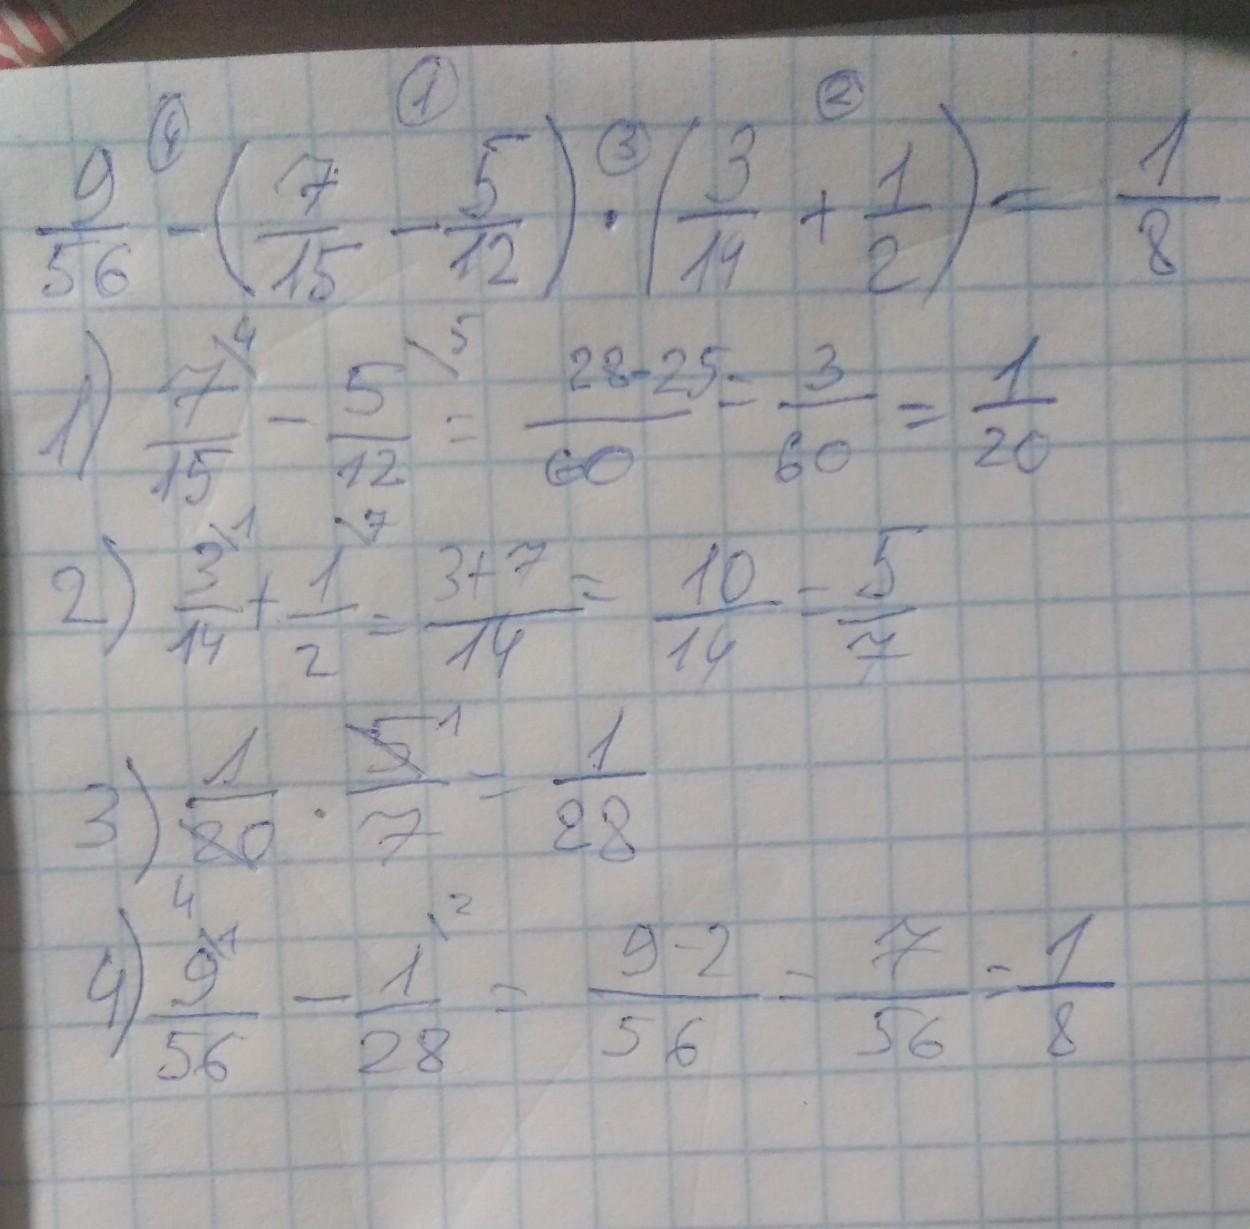 ④ ① ③ ②
9/56 - (7/15 - 5/12) · (3/14 + 1/2) = 1/8
1) 7\4/15 - 5\5/12 = 28-25/60 = 3/60 = 1/20
2) 3\1/14 + 1\7/2 = 3+7/14 = 10/14 = 5/7
3) 1/20 4 · 5 1/7 = 1/28
4) 9\1/56 - 1\2/28 = 9-2/56 = 7/56 = 1/8